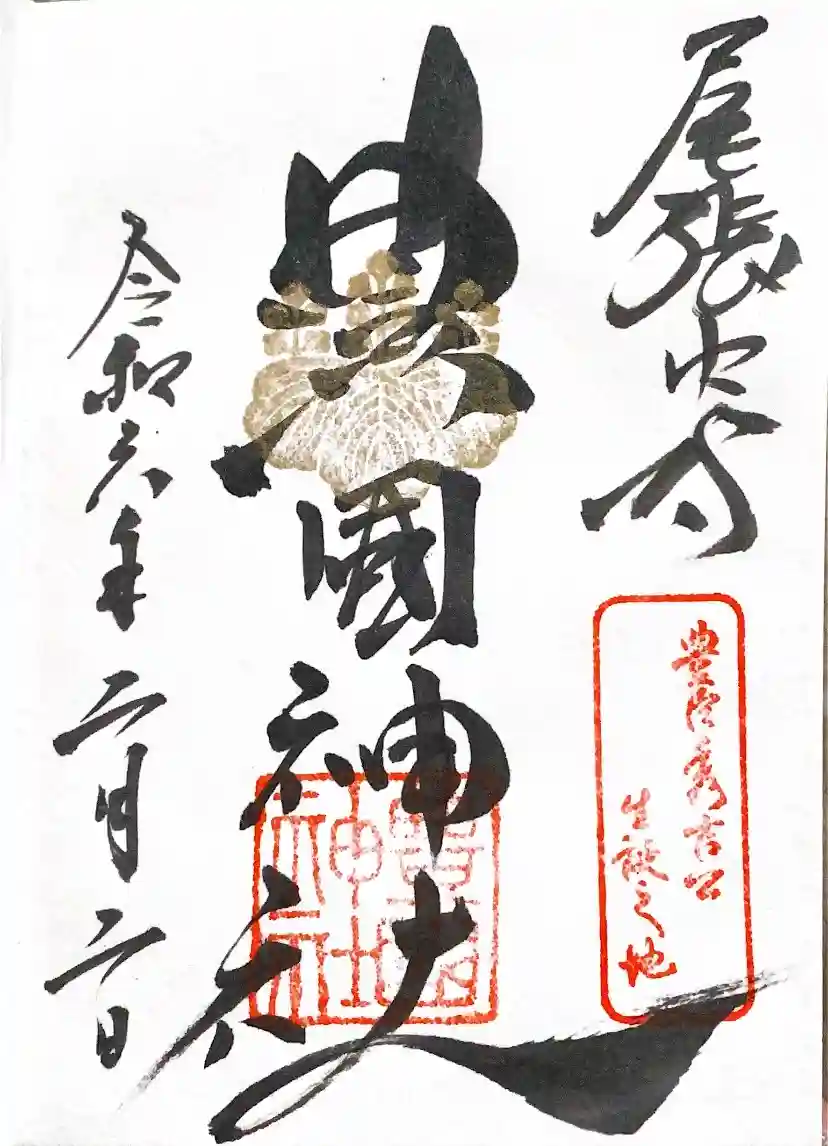 尾張中村
豊臣秀吉公
生誕之地
豊國神社
豊國
神社
令和六年二月二日